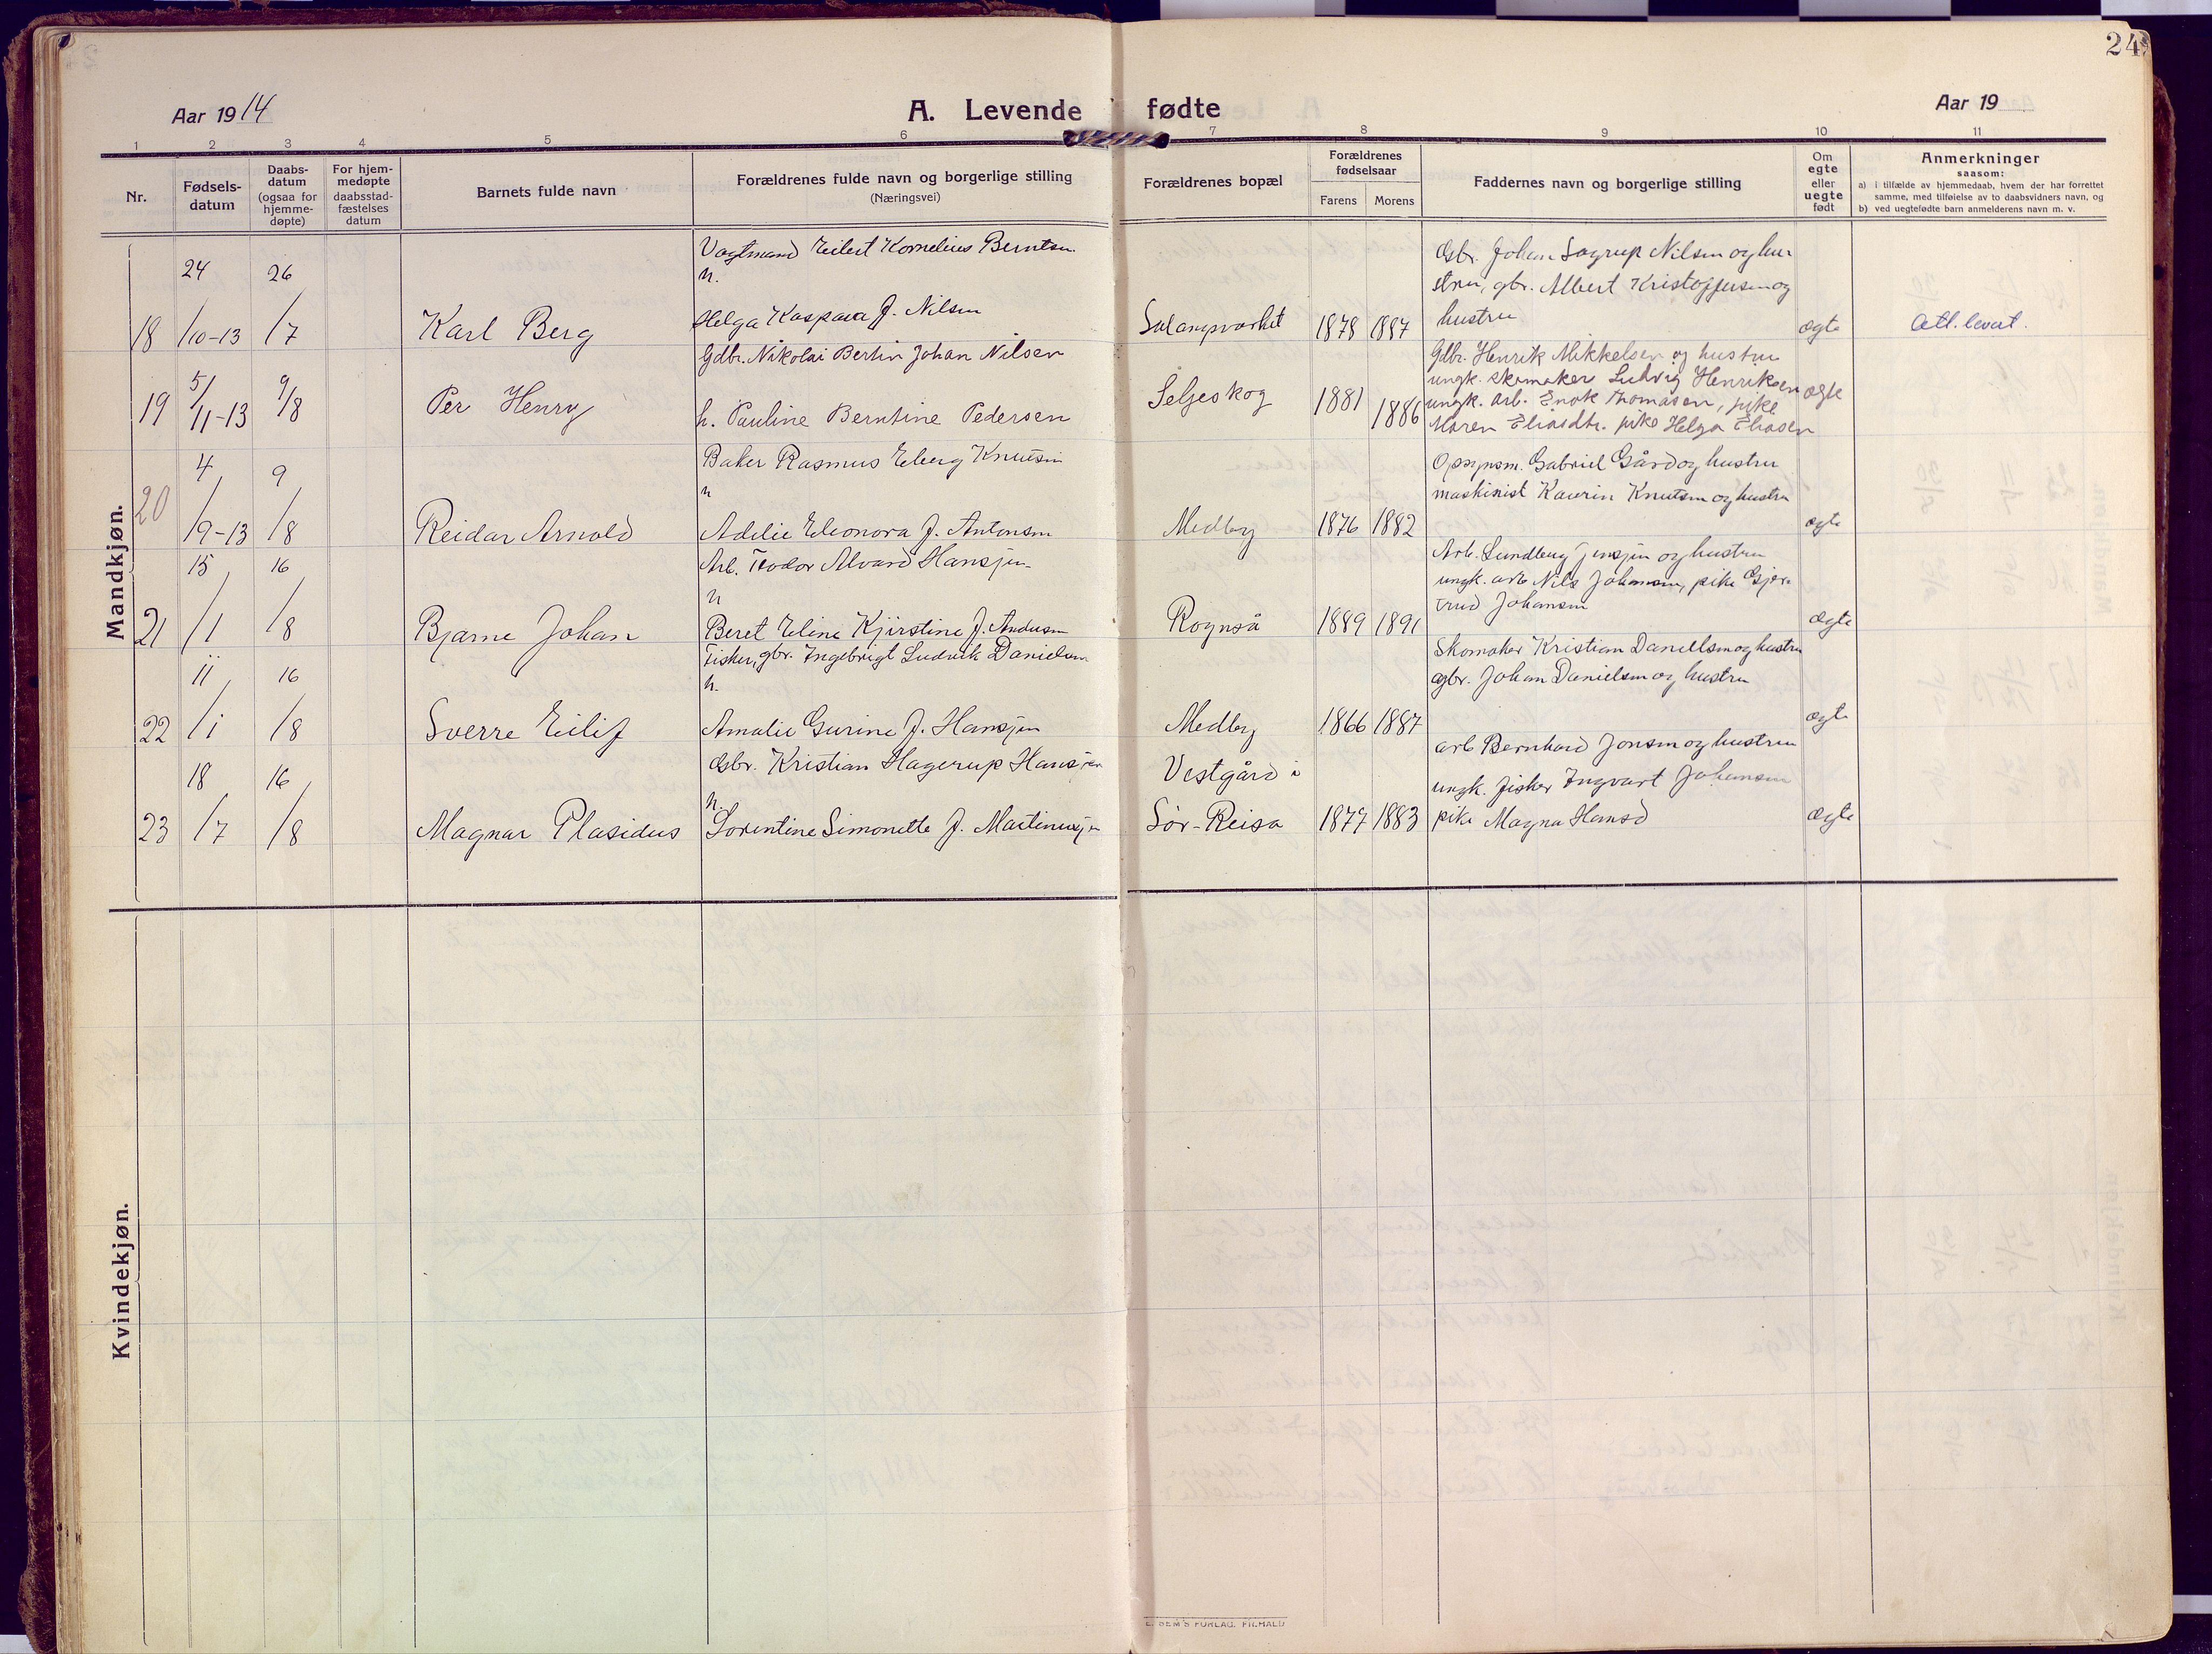 24
Aar 1914
A. Levende fødte
Aar 19
1 2 3 4 5 6 7 8 9 10 11
Nr.
Fødsels-
datum
Daabs-
datum
(ogsaa for
hjemme-
døpte)
For hjem-
medøpte
daabsstad-
fæstelses
datum
Barnets fulde navn
Forældrenes fulde navn og borgerlige stilling
(Næringsvei)
Forældrenes bopæl
Forældrenes
fødselsaar
Farens Morens
Faddernes navn og borgerlige stilling
Om
egte
eller
uegte
født
Anmerkninger
saasom:
a) i tilfælde av hjemmedaab, hvem der har forrettet
samme, med tilføielse av to daabsvidners navn, og
b) ved uegtefødte barn anmelderens navn m. v.
Mandkjøn.
18
24/10-13
26/7
Karl Berg
Vagtmand Eilert Kornelius Berntsen
h.
Helga Kaspara f. Nilsen
Salangsverket
1878 1887
Gbr. Johan Sagrup Nilsen og hu-
stru, gbr. Albert Kristoffersen og
hustru
egte
Att. levert.
19
5/11-13
9/8
Per Henry
Gdbr. Nikolai Bertin Johan Nilsen
h. Pauline Berntine Pedersen
Seljeskog
1881 1886
Gdbr. Henrik Mikkelsen og hustru
ungk. skomaker Ludvig Henriksen
ungk. arb. Enok Thomasen, pike
Maren Eliasdtr. pike Helga Eliasen
egte
20
4/9-13
9/8
Reidar Arnold
Baker Rasmus Eberg Knutsen
h
Adelie Eleonora f. Antonsen
Medby
1876 1882
Opsynsm. Gabriel Gård og hustru
maskinist Kaurin Knutsen og hustru
egte
21
15/1
16/8
Bjarne Johan
Arb. Teodor Alvard Hansen
h
Beret Eline Kjirstine f. Andersen
Rognså
1889 1891
Arb. Lundberg Jensen og hustru
ungk. arb Nils Johansen, pike Gjer-
trud Johansen
egte
22
11/1
16/8
Sverre Eilif
Fisker, gbr. Ingebrigt Ludvik Danielsen
h.
Amalie Gurine f. Hansen
Medby
1866 1887
Skomaker Kristian Daniellsen og hustru
gbr. Johan Danielsen og hustru
egte
23
18/7
16/8
Magnar Plasidus
Gbr. Kristian Hagerup Hansen
h.
Lorentine Simonette f. Martinussen
Vestgård i
Sør-Reisa
1877 1883
arb Bernhard Jonsen og hustru
ungk. fisker Ingvart Johansen
pike Magna Hansd
egte
Kvindekjøn.
E. SEM'S FORLAG, FR.HALD